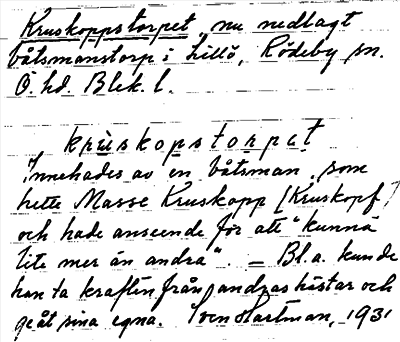 Kruskoppstorpet nu nedlagt
båtsmanstorp i Lillö, Rödeby sn.
Ö. hd. Blek. l.
kruskopstorpat
Innehades av en båtsman, som
hette Masse Kruskopp [Kruskopf]
och hade anseende för att "kunna
lite mer än andra". – Bl.a. kunde
han ta kraften från andras hästar och
ge åt sina egna. Sven Hartman, 1931